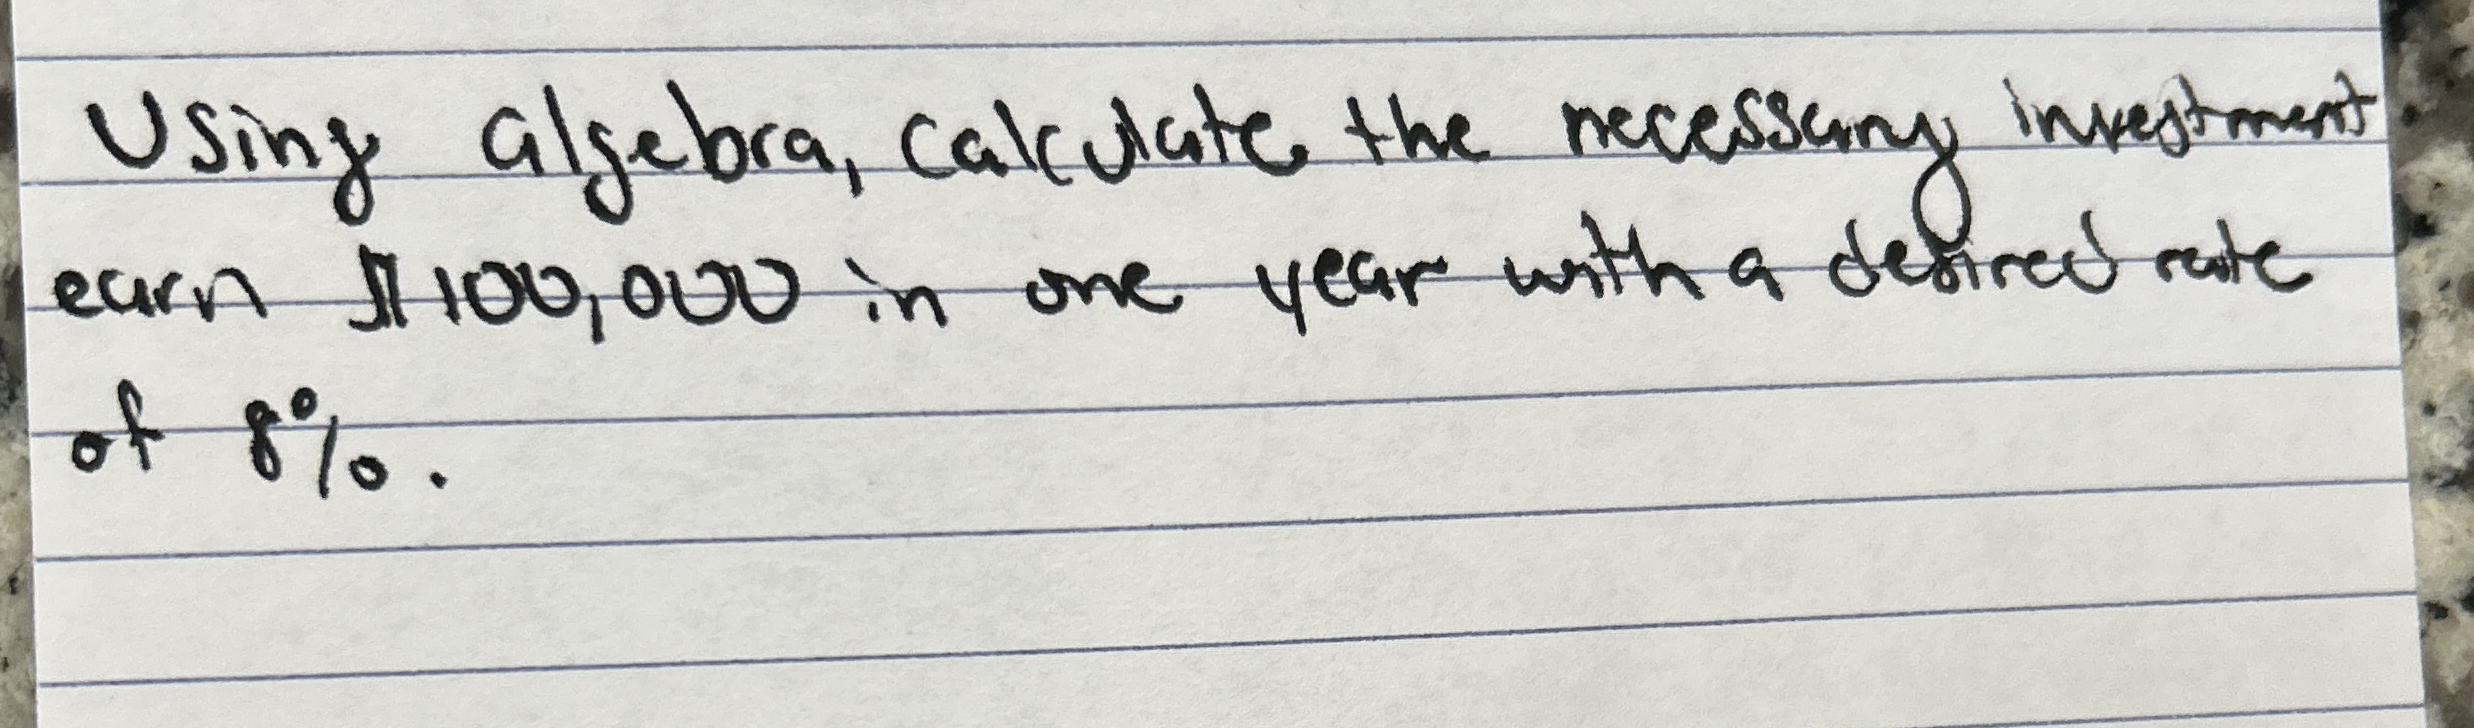 Using algebra, calculate the necessary investment
earn $100,000 in one year with a desired rate
of 8%.